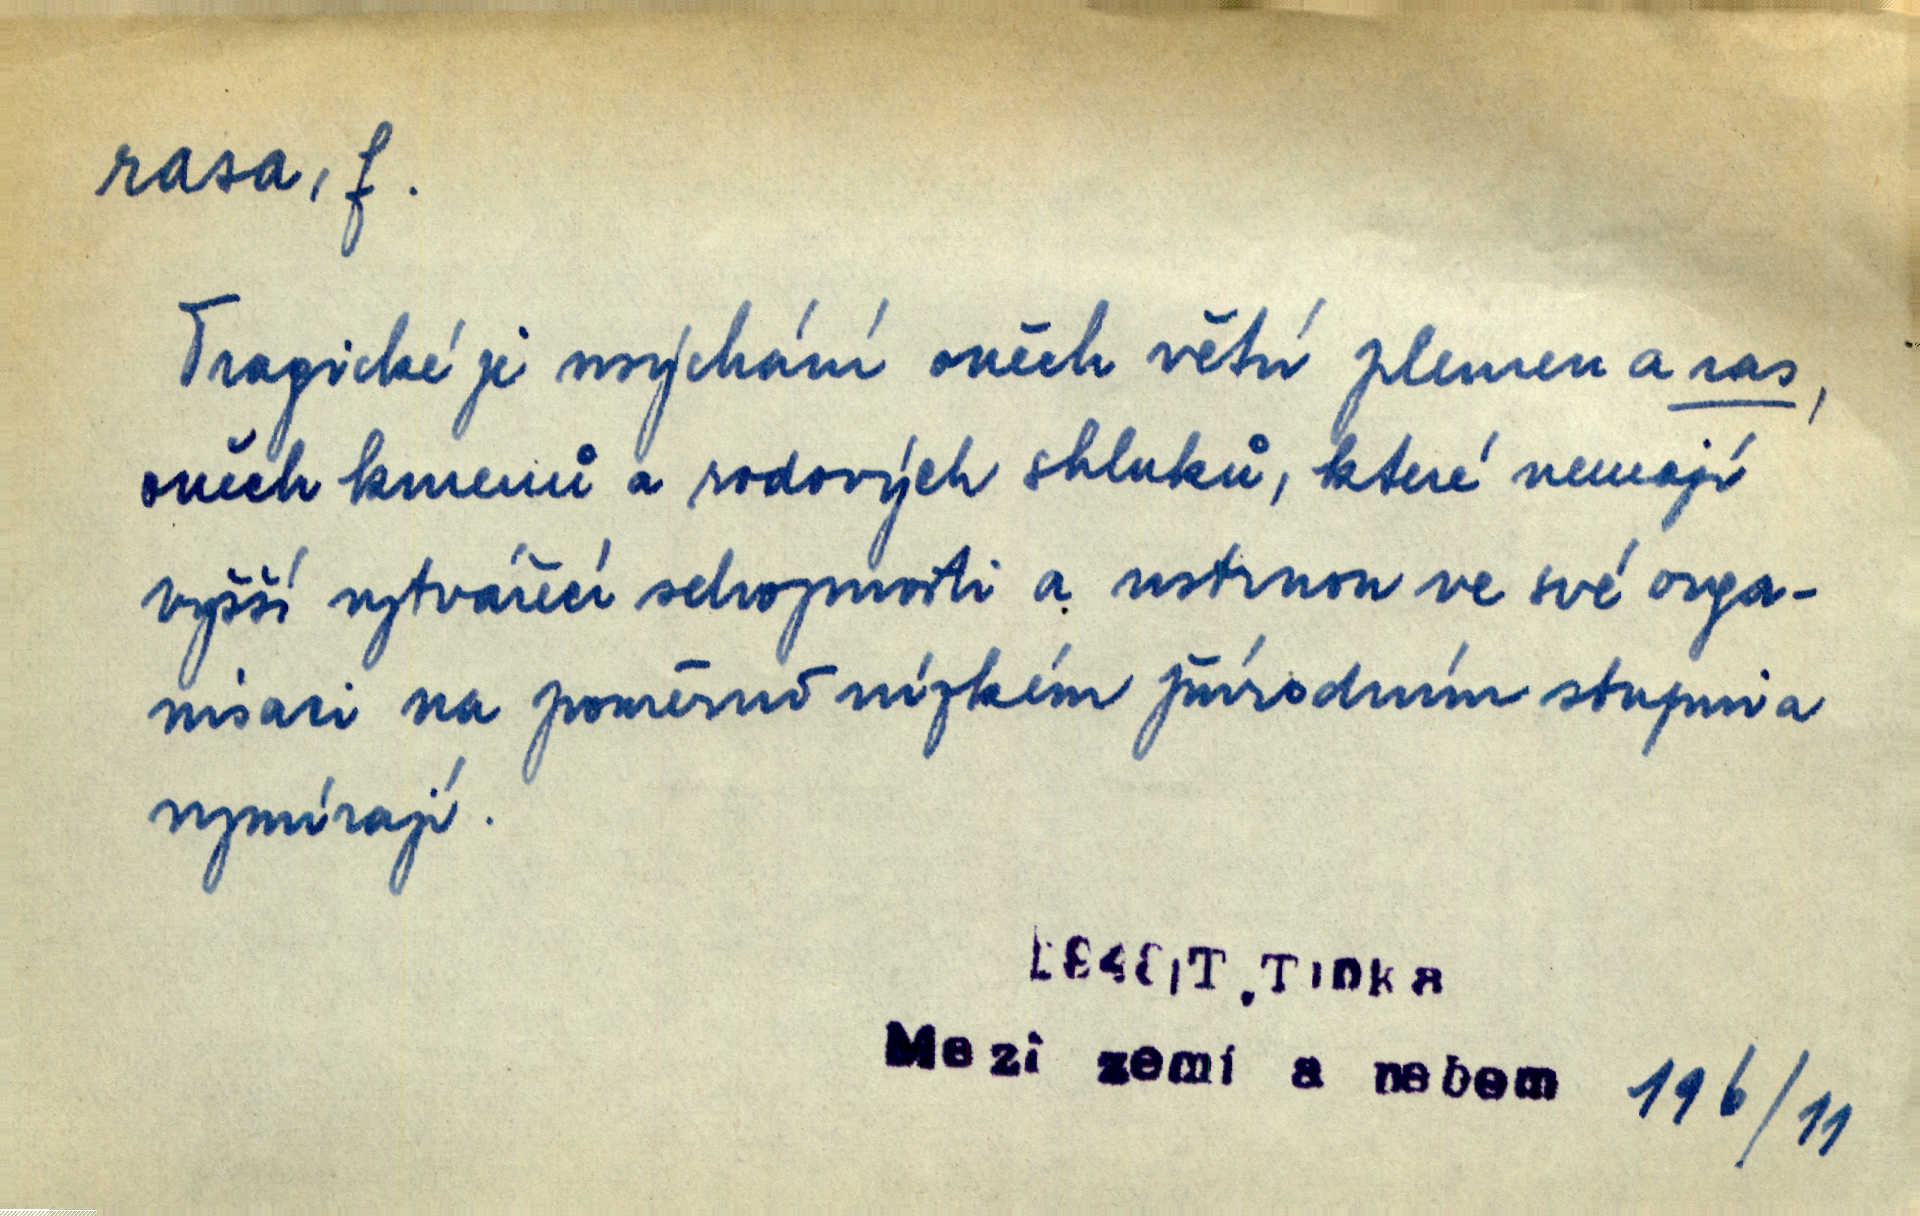 rasa, f.
Tragické je usýchání oněch větví plemen a ras,
oněch kmenů a rodových shluků, které nemají
vyšší vytvářecí schopnosti a ustrnou ve své orga-
nisaci na poměrně nízkém přírodním stupni a
vymírají.
T. Tinka
Mezi zemí a nebem 196/11